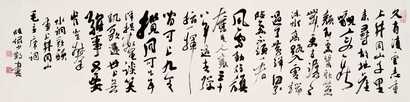 久有凌云志重
上井冈山千里
来寻故地旧
貌变新颜到处
莺歌燕舞更有
潺潺流水高
路入云端过了
黄洋界险处
不须看
风雷动旌旗
奋是人寰三十
八年过去弹
指一挥间
可上九天
揽月可下五
洋捉鳖谈笑
凯歌还世上无
难事只要
肯登攀
水调歌头
重上井冈山
毛主席词